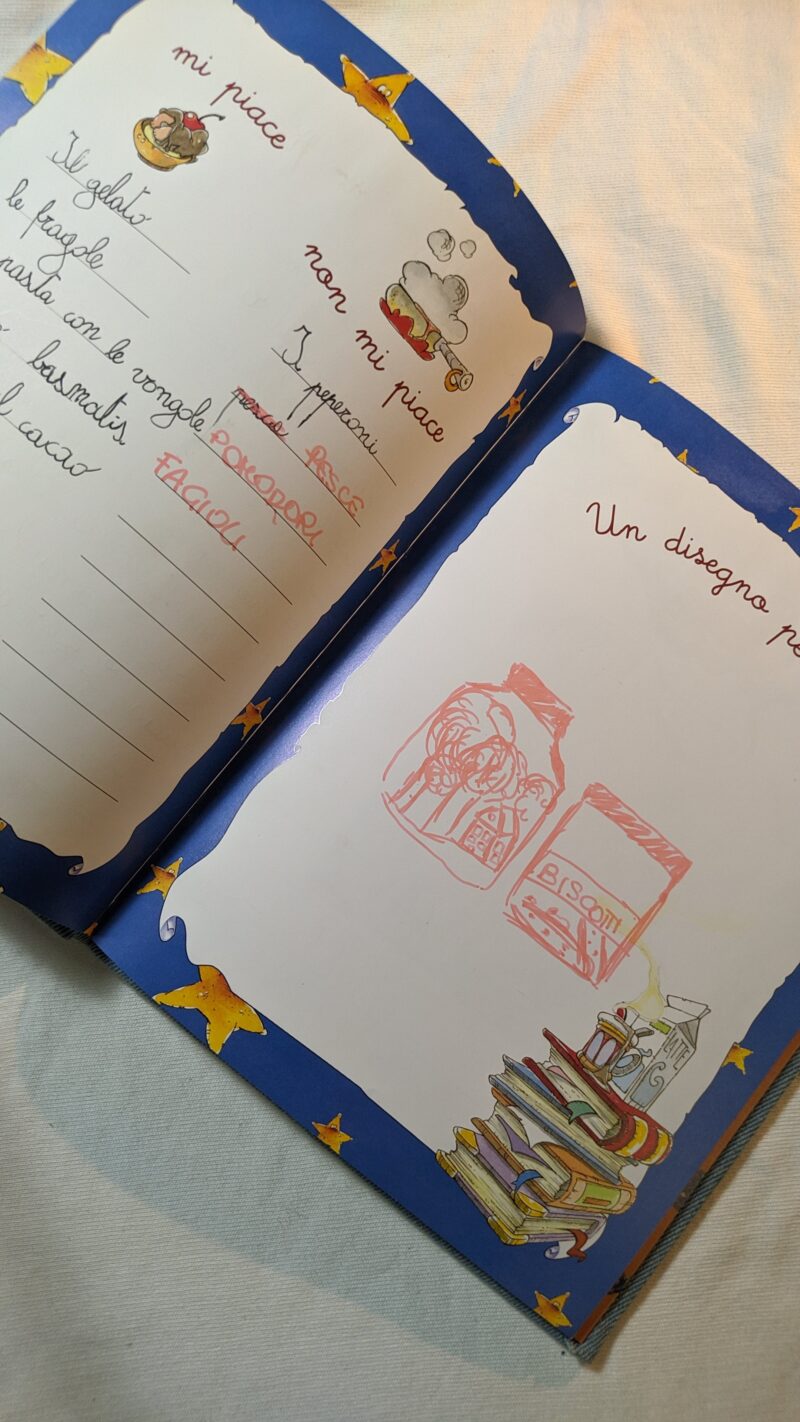 mi piace
Il gelato
le fragole
pasta con le vongole
basmatis
cacao
non mi piace
I peperoni
pesce PESCE
POMODORI
FAGIOLI
Un disegno
BISCOTTI
LATTE